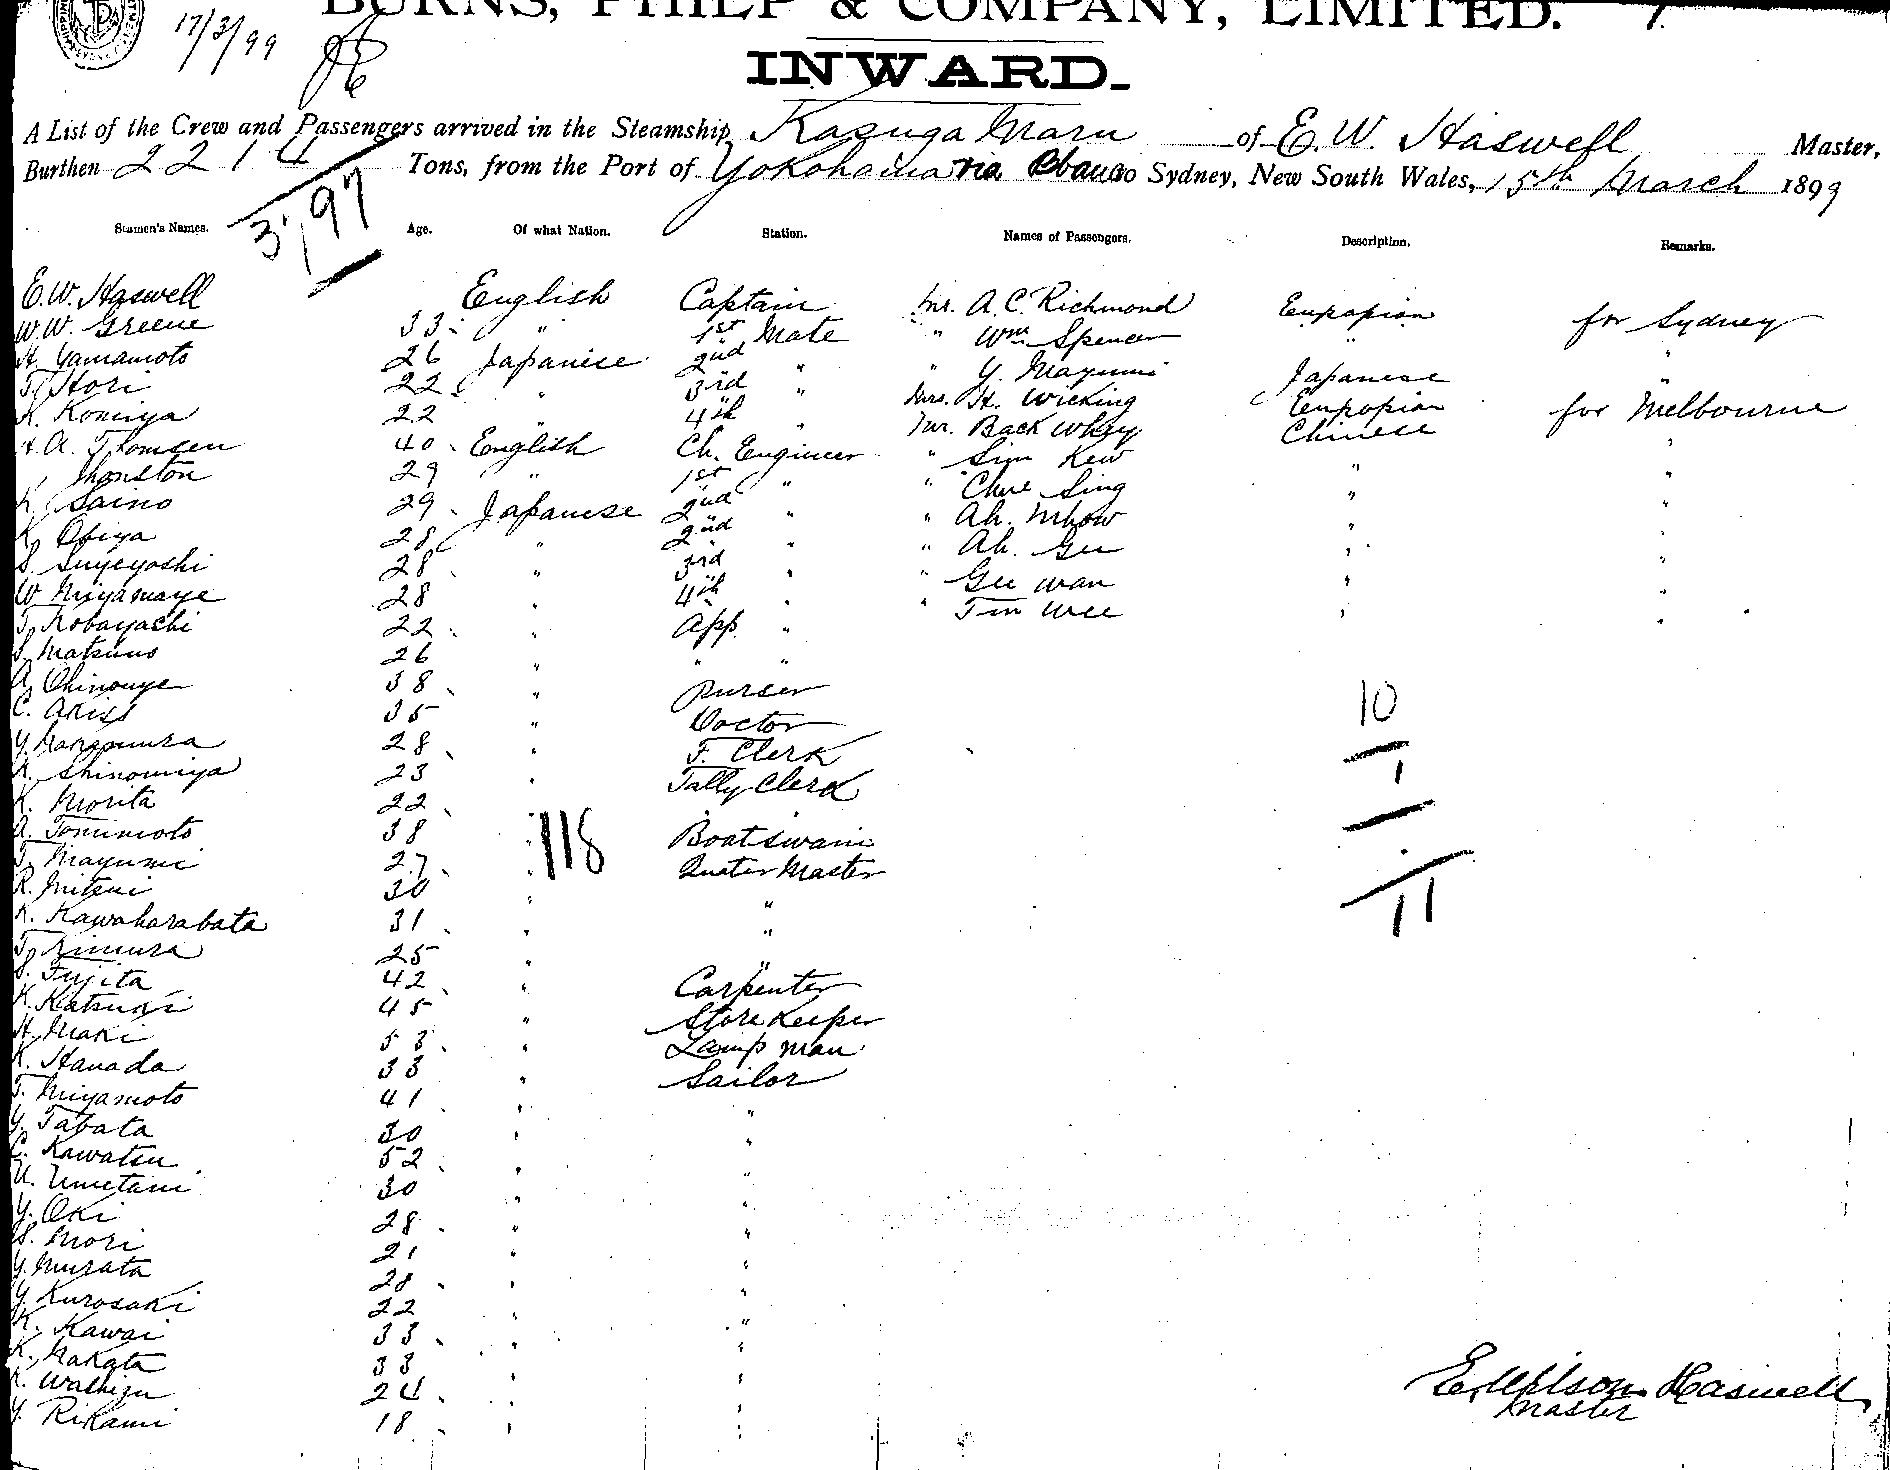 17/3/99
BURNS, PHILP & COMPANY, LIMITED.
INWARD.
A List of the Crew and Passengers arrived in the Steamship Kasuga Maru of E. W. Haswell Master,
Burthen 2214 Tons, from the Port of Yokohama via to Sydney, New South Wales, 15th March 1899
3,97
Seamen's Names. Age. Of what Nation. Station. Names of Passengers. Description. Remarks.
E. W. Haswell English Captain Mr. A. C. Richmond Euporian for Sydney
W. W. Greene 33 " 1st Mate " Wm Spencer " "
H. Yamamoto 26 Japanese 2nd " " Y. Mayumi Japanese "
T. Hori 22 " 3rd " Mrs. H. Wicking Euporian for Melbourne
K. Komiya 22 " 4th " Mr. Back Whey Chinese "
A. Thomsen 40 English Ch. Engineer " Sim Kew " "
Jhonston 29 " 1st " " Chue Sing " "
K. Saino 29 Japanese 2nd " " Ah. Mhow " "
K. Ofiya 28 " 2nd " " Ah. Gee " "
S. Suyeyoshi 28 " 3rd " " Gee Wan " "
W. Miyamaye 28 " 4th " " Tim Wee " "
T. Kobayashi 22 " App. "
S. Matsuno 26 " " "
A. Chinouye 38 " Purser
C. Akiss 35 " Doctor
Y. Nakamura 28 " F. Clerk
K. Shinomiya 23 " Tally Clerk
K. Morita 22 " "
A. Tomimoto 38 " Boatswain
T. Mayumi 27 " Quater Master
R. Mitsui 30 " "
K. Kawaharabata 31 " "
T. Kimura 25 " "
S. Fujita 42 " Carpenter
K. Katsuki 45 " Store Keeper
H. Maki 53 " Lamp man
K. Hanada 33 " Sailor
T. Miyamoto 41 " "
Y. Tabata 30 " "
C. Kawatsu 52 " "
U. Umetani 30 " "
Y. Oki 28 " "
S. Mori 21 " "
Y. Murata 28 " "
Y. Kurosaki 22 " "
K. Kawai 33 " "
K. Nakata 33 " "
24 " "
Y. Rikami 18 " "
118
10
1
11
E. Wilson Haswell
Master